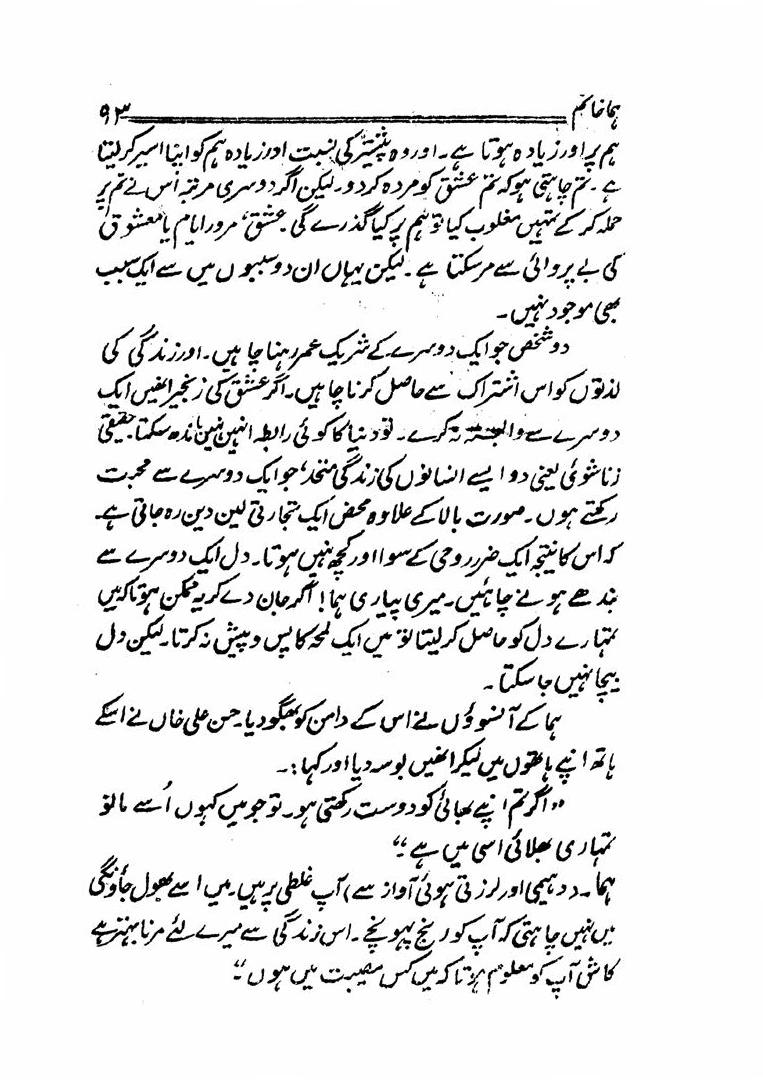 ہما خانم ۹۳
ہم پر اور زیادہ ہوتا ہے۔ اور وہ پیشتر کی نسبت اور زیادہ ہم کو اپنا اسیر کر لیتا
ہے۔ تم چاہتی ہو کہ تم عشق کو مردہ کر دو۔ لیکن اگر دوسری مرتبہ اُس نے تم پر
حملہ کر کے تمہیں مغلوب کیا تو ہم پر کیا گذرے گی۔ عشق، مرور ایام یا معشوق
کی بے پروائی سے مر سکتا ہے۔ لیکن یہاں ان دو سببوں میں سے ایک سبب
بھی موجود نہیں۔
دو شخص جو ایک دوسرے کے شریک عمر رہنا چاہیں۔ اور زندگی کی
لذتوں کو اس اشتراک سے حاصل کرنا چاہیں۔ اگر عشق کی زنجیر انھیں ایک
دوسرے سے وابستہ نہ کرے۔ تو دنیا کا کوئی رابطہ انہیں نہیں باندھ سکتا۔ حقیقی
زناشوئی یعنی دو ایسے انسانوں کی زندگی متحد، جو ایک دوسرے سے محبت
رکھتے ہوں۔ صورت بالا کے علاوہ محض ایک تجارتی لین دین رہ جاتی ہے۔
کہ اس کا نتیجہ ایک ضرر روحی کے سوا اور کچھ نہیں ہوتا۔ دل ایک دوسرے سے
بندھے ہونے چاہئیں۔ میری پیاری ہما! اگر جان دے کر یہ ممکن ہوتا کہ میں
تمہارے دل کو حاصل کر لیتا تو میں ایک لمحہ کا پس و پیش نہ کرتا۔ لیکن دل
بیچا نہیں جا سکتا۔
ہما کے آنسوؤں نے اس کے دامن کو بھگو دیا۔ حسن علی خاں نے اسکے
ہاتھ اپنے ہاتھوں میں لیکر انھیں بوسہ دیا اور کہا:۔
"اگر تم اپنے بھائی کو دوست رکھتی ہو۔ تو جو میں کہوں اُسے مانو
تمہاری بھلائی اسی میں ہے"
ہما۔ (دھیمی اور لرزتی ہوئی آواز سے) آپ غلطی پر ہیں۔ میں اسے بھول جاؤنگی
میں نہیں چاہتی کہ آپ کو رنج پہونچے۔ اس زندگی سے میرے لئے مرنا بہتر ہے
کاش آپ کو معلوم ہوتا کہ میں کس مصیبت میں ہوں"